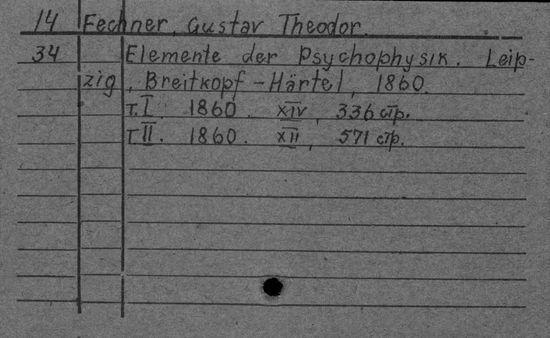 14 Fechner, Gustav Theodor.
34 Elemente der Psychophysik. Leip-
zig, Breitkopf-Härtel, 1860.
т. I 1860. XIV, 336 стр.
т. II. 1860. XII, 571 стр.